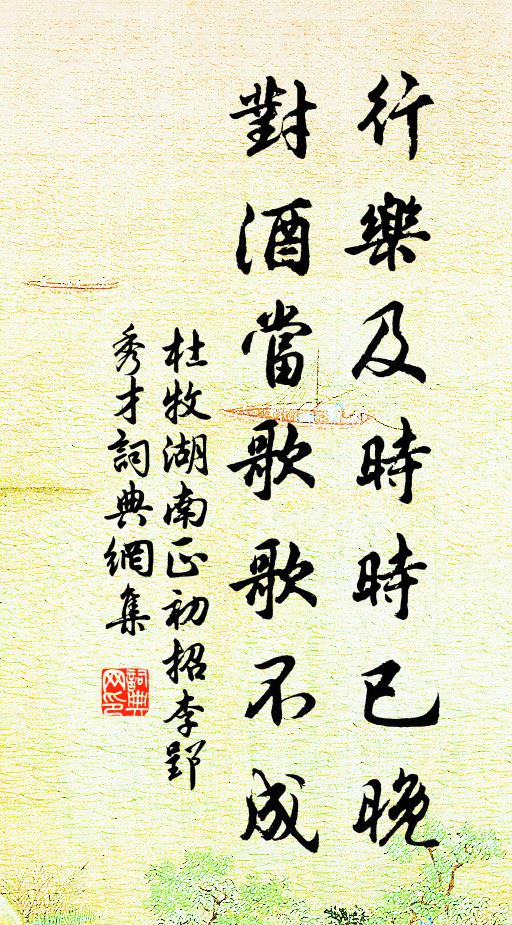 行樂及時時已晚
對酒當歌歌不成
杜牧湖南正初招李郢
秀才詞典網集
詞典
网印